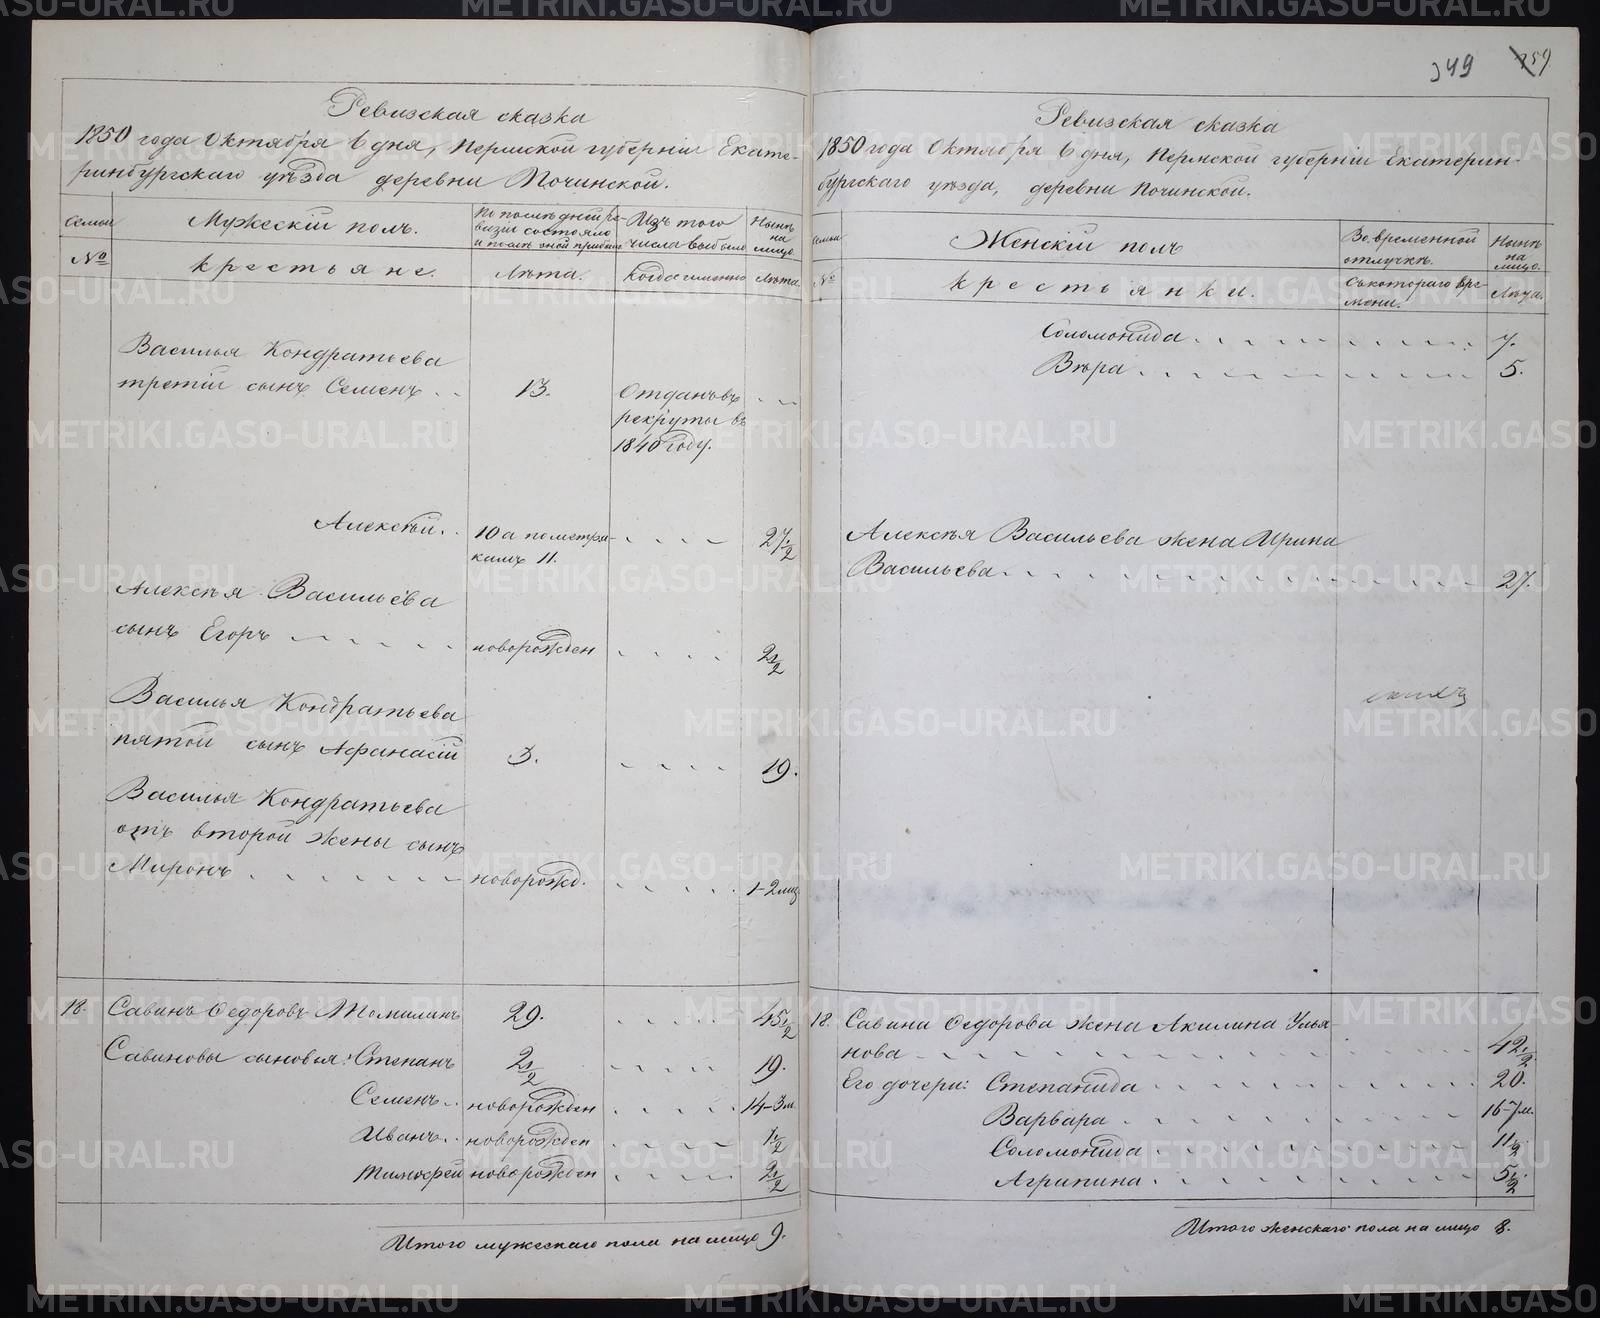 349 259
Ревизская сказка
1850 года Октября 6 дня, Пермской губерніи Екате-
ринбургскаго уѣзда деревни Починской.
Семьи Мужескій полъ. По послѣдней ре- Изъ того Нынѣ
визіи состояло числа выбыло на
и послѣ оной прибыло лицо.
№ крестьяне. Лѣта. Когда именно Лѣта.
Василья Кондратьева
третій сынъ Семенъ . . 13. Отданъ въ
рекруты въ
1840 году.
Алексѣй. . 10 а по метри- 27 1/2
камъ 11.
Алексѣя Васильева
сынъ Егоръ новорожден 2 1/2
Василья Кондратьева
пятой сынъ Афанасій 3. 19.
Василья Кондратьева
отъ второй жены сынъ
Миронъ новорожд. 1-2 мц
18. Савинъ Федоровъ Томилинъ 29. 45 1/2
Савиновы сыновья: Степанъ 2 1/2 19.
Семенъ. . новорожден 14-3 м.
Иванъ. . новорожден 7 1/2
Тимофей новорожден 2 1/2
Итого мужескаго пола на лицо 9.
Ревизская сказка
1850 года Октября 6 дня, Пермской губерніи Екатерин-
бургскаго уѣзда, деревни Починской.
Семьи Женскій полъ Во временной Нынѣ
отлучкѣ. на
лицо.
№ крестьянки. Съ котораго вре- Лѣта.
мени.
Соломонида 7.
Вѣра 5.
Алексѣя Васильева жена Ирина
Васильева 27.
18. Савина Федорова жена Акилина Улья-
нова 42 1/2
Его дочери: Степанида 20.
Варвара 16-7 м.
Соломонида 11 1/2
Агрипина 5 1/2
Итого женскаго пола на лицо 8.
METRIKI.GASO-URAL.RU